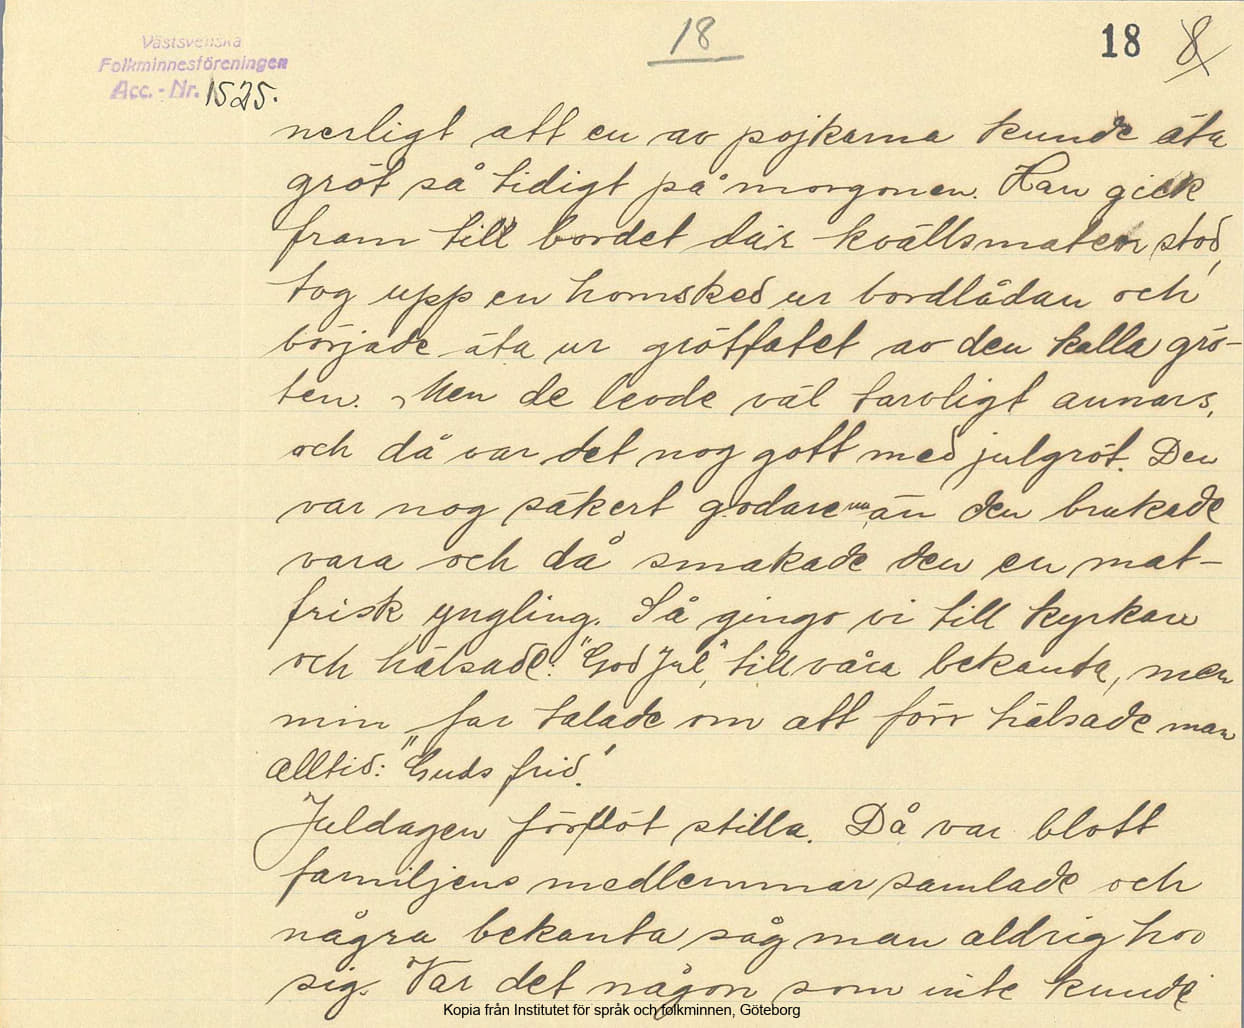 Västsvenska
Folkminnesföreningen
Acc. - Nr. 1525.
18
18 8
nerligt att en av pojkarna kunde äta
gröt så tidigt på morgonen. Han gick
fram till bordet där kvällsmaten stod,
tog upp en hornsked ur bordlådan och
började äta ur grötfatet av den kalla grö-
ten. Men de levde väl tarvligt annars,
och då var det nog gott med julgröt. Den
var nog säkert godare än den brukade
vara och då smakade den en mat-
frisk yngling. Så gingo vi till kyrkan
och hälsade: "God Jul", till våra bekanta, men
min far talade om att förr hälsade man
alltid: "Guds frid."
Juldagen förflöt stilla. Då var blott
familjens medlemmar samlade och
några bekanta såg man aldrig hos
sig. Var det någon som inte kunde
Kopia från Institutet för språk och folkminnen, Göteborg